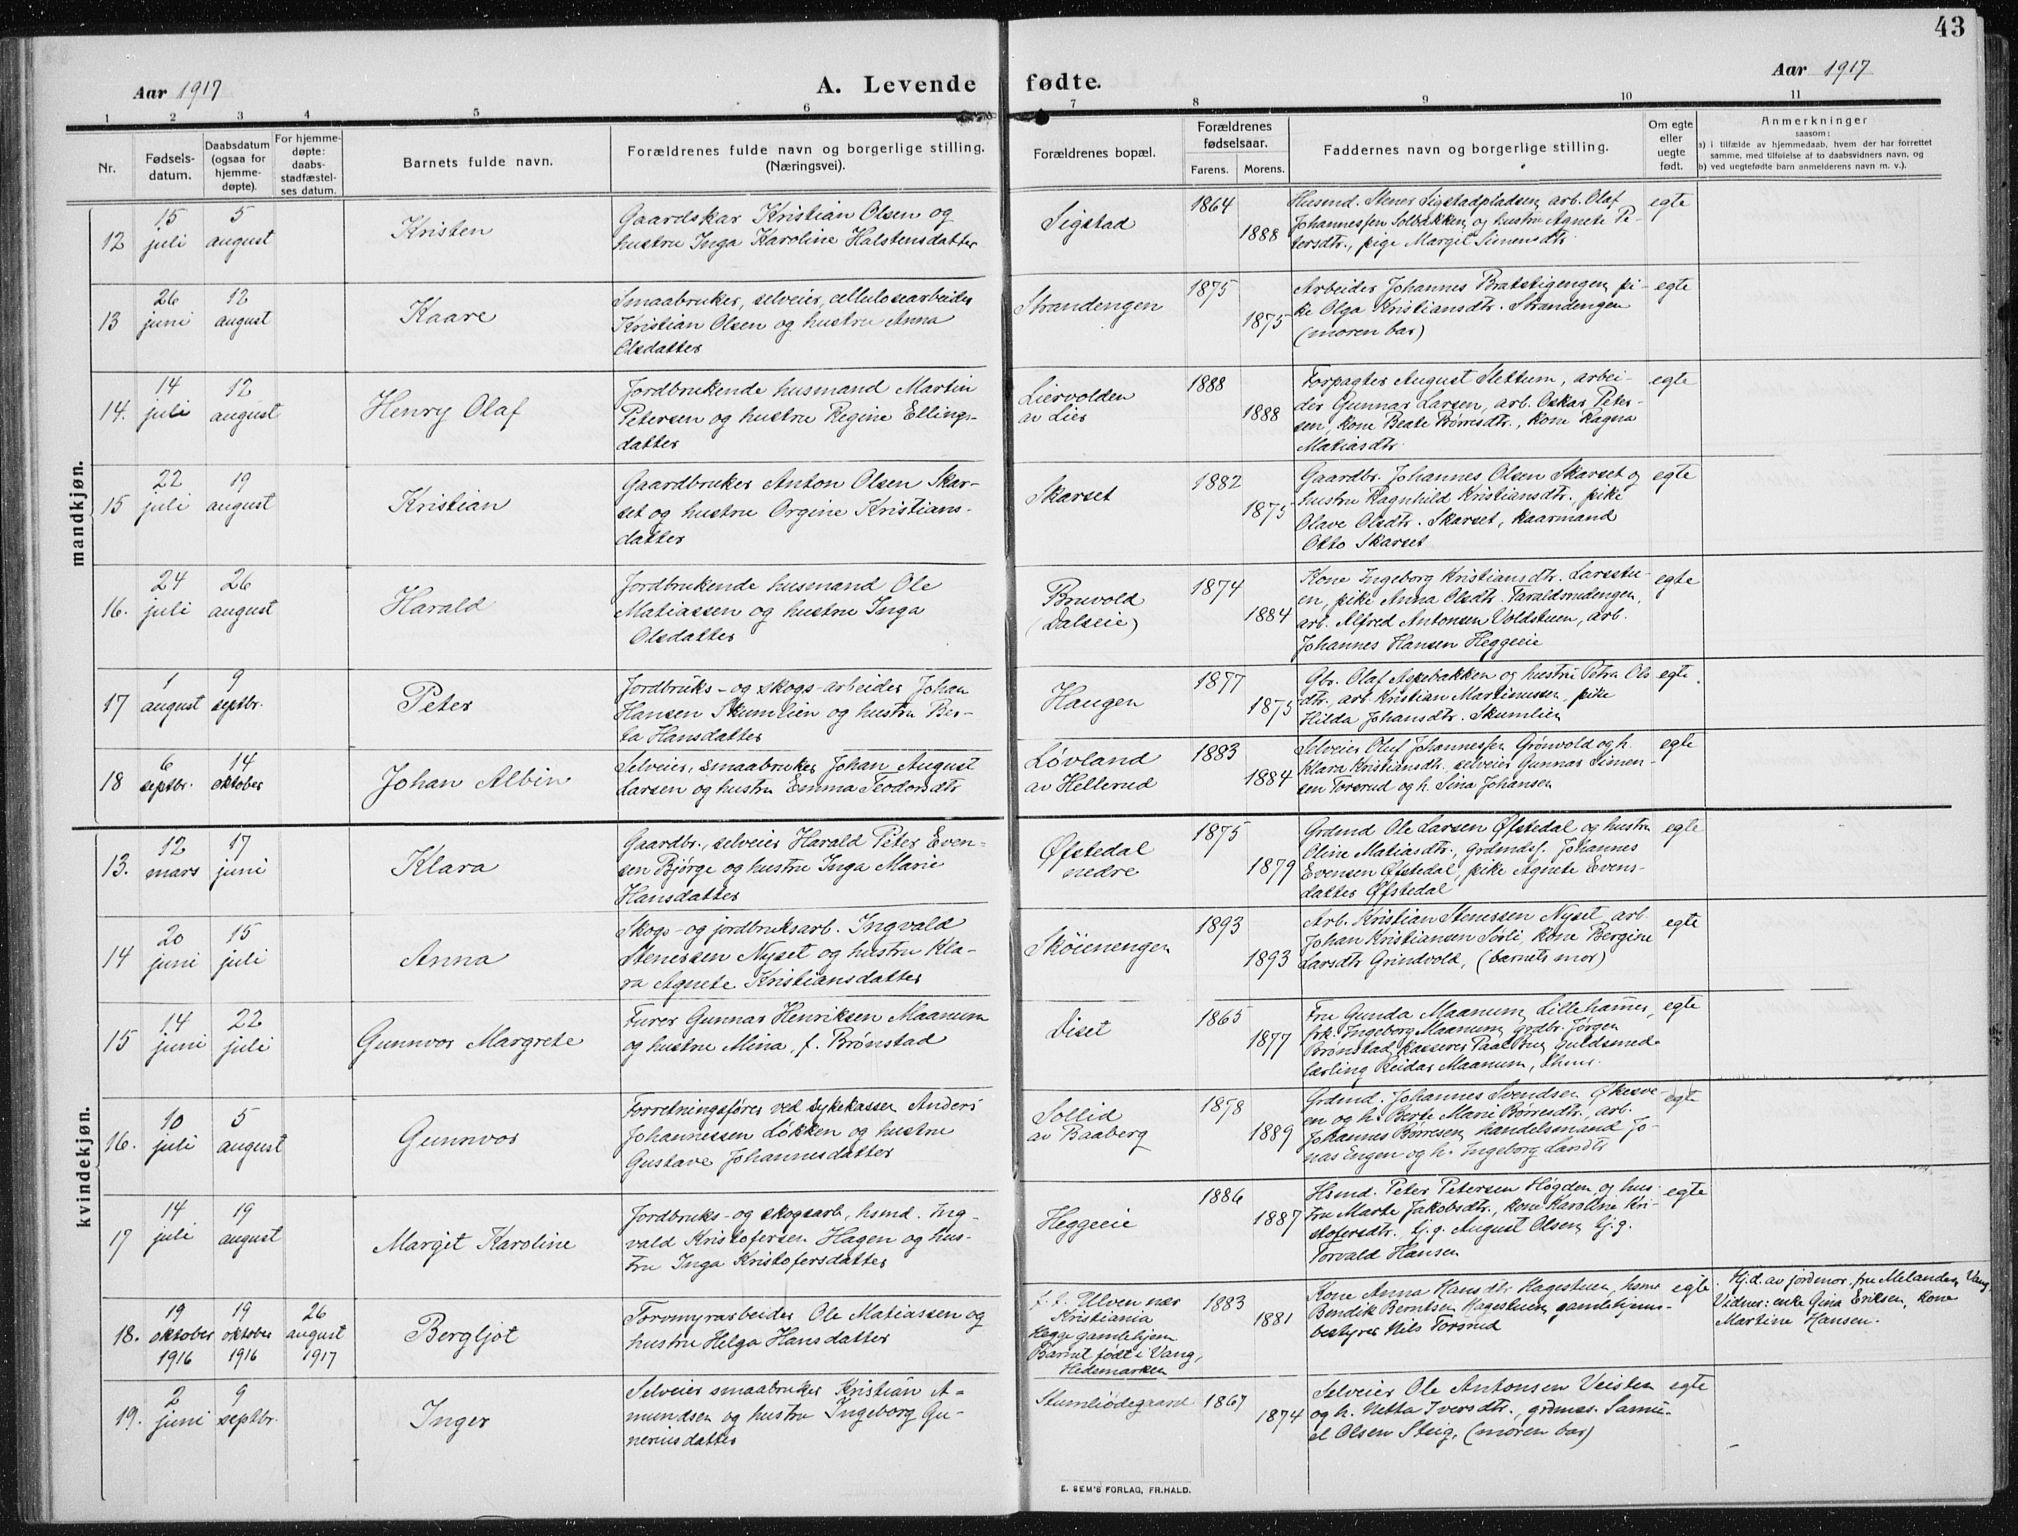 43
Aar 1917
A. Levende fødte.
Aar 1917
1 2 3 4 5 6 7 8 9 10 11
Nr.
Fødsels-
datum.
Daabsdatum
(ogsaa for
hjemme-
døpte).
For hjemme-
døpte:
daabs-
stadfæstel-
ses datum.
Barnets fulde navn.
Forældrenes fulde navn og borgerlige stilling.
(Næringsvei).
Forældrenes bopæl.
Forældrenes
fødselsaar.
Farens. Morens.
Faddernes navn og borgerlige stilling.
Om egte
eller
uegte
født.
Anmerkninger
saasom:
a) i tilfælde av hjemmedaab, hvem der har forrettet
samme, med tilføielse af to daabsvidners navn, og
b) ved uegtefødte barn anmelderens navn m. v.).
mandkjøn.
12
15
juli
5
august
Kristen
Gaardskar Kristian Olsen og
hustru Inga Karoline Halstensdatter
Sigstad
1864
1888
Husmd. Stener Sigstadpladsen, arb. Olaf
Johannessen Solbakken og hustru Agnete Pe-
tersdtr., pige Margit Simensdtr.
egte
13
26
juni
12
august
Kaare
Smaabruker, selveier, cellulosearbeider
Kristian Olsen og hustru Anna
Olsdatter
Strandengen
1875
1875
Arbeider Johannes Bratstigengen, pi-
ke Olga Kristiansdtr. Strandengen
(moren bar)
egte
14.
14
juli
12
august
Henry Olaf
Jordbrukende husmand Martin
Petersen og hustru Regine Ellings-
datter
Liervolden
av Lier
1888
1888
Forpagter August Slettum, arbei-
der Gunnar Larsen, arb. Oskar Peter-
sen, kone Beate Børresdtr., kone Ragna
Matiasdtr.
egte
15
22
juli
19
august
Kristian
Gaardbruker Anton Olsen Skar-
set og hustru Orgine Kristians-
datter
Skarset
1882
1875
Gaardbr. Johannes Olsen Skarset og
hustru Ragnhild Kristiansdtr. pike
Olave Olsdtr. Skarset, kaarmand
Otto Skarset
egte
16.
24
juli
26
august
Harald
Jordbrukende husmand Ole
Matiassen og hustru Inga
Olsdatter
Bruvold
(Dalseie)
1874
1884
Kone Ingeborg Kristiansdtr. Larsstu-
en, pike Anna Olsdtr. Taraldsrudengen,
arb. Alfred Antonsen Voldstuen, arb.
Johannes Hansen Heggeeie
egte
17
1
august
9
septbr.
Peter
Jordbruks- og skogs-arbeider Johan
Hansen Skumlien og hustru Ber-
ta Hansdatter
Haugen
1877
1875
Gbr. Olaf Aspebakken og hustru Petra Ols
dtr., arb. Kristian Martinussen, pike
Hilda Johansdtr. Skumlien
egte.
18
6
septbr.
14
oktober
Johan Albin
Selveier, smaabruker Johan August
Larsen og hustru Emma Teodorsdtr
Løvland
av Hellerud
1883
1884
Selveier Oluf Johannessen Grönvold og h.
Klara Kristiansdtr. selveier Gunnar Simen-
sen Torsrud og h. Sina Johansen
egte
kvindekjøn.
13.
12
mars
17
juni
Klara
Gaardbr., selveier Harald Peter Even-
sen Bjørge og hustru Inga Marie
Hansdatter
Øfstedal
nedre
1875
1879
Grdmd Ole Larsen Øfstedal og hustru
Oline Matiasdtr., grdmds. Johannes
Evensen Øfstedal, pike Agnete Evens-
datter Øfstedal
egte
14
20
juni
15
juli
Anna
Skogs- og jordbruksarb. Ingvald
Stenersen Nyset og hustru Kla-
ra Agnete Kristiansdatter
Sköienengen
1893
1893
Arb. Kristian Stenersen Nyset, arb
Johan Kristiansen Sørli, kone Bergine
Larsdtr Grindvold, (barnets mor)
egte
15
14
juni
22
juli
Gunnvor Margrete
Furer Gunnar Henriksen Maanum
og hustru Mina, f. Brønstad
Diset
1865
1877
Fru Gunda Maanum, Lillehamer,
frk. Ingeborg Maanum, grdbr. Jørgen
Brønstad, kasserer Paal Brug, guldsmed-
lærling Reidar Maanum, Lhmr.
egte
16.
10
juli
5
august
Gunnvor
Forretningsfører ved sykekassen Anders
Johannessen Løkken og hustru
Gustave Johannesdatter
Sollid
av Baaberg
1878
1889
Grdmd. Johannes Svendsen Økesve-
en og h. Berte Marie Børresdtr., arb.
Johannes Børresen, handelsmand Jo-
nas Engen og h. Ingeborg Larsdtr
egte
17
14
juli
19
august
Margit Karoline
Jordbruks- og skogsarb, hsmd. Ing-
vald Kristofersen Hagen og hus-
tru Inga Kristofersdatter
Heggeeie
1886
1887
Hsmd. Peter Petersen Høgden og hus-
tru Marte Jakobsdtr, kone Karoline Kri-
stofersdtr. Gj.g. August Olsen, Gj.g.
Torvald Hansen
egte
18.
19
oktober
1916
19
oktober
1916
26
august
1917
Bergljot
Torvmyrarbeider Ole Matiassen og
hustru Helga Hansdatter
f.t. Ulven nær
Kristiania
Hegge gamlehjem
Barnet født i Vang,
Hedemarken
1883
1881
Kone Anna Hansdtr Hagestuen, hsmd
Bendik Berntsen Hagestuen, gamlehjems-
bestyrer Nils Torsrud
egte
Hj.d. av jordmor fru Melanden, Vang,
Vidner: enke Gina Eriksen, kone
Martine Hansen.
19.
2
juni
9
septbr.
Inger
Selveier smaabruker Kristian A-
mundsen og hustru Ingeborg Gu-
neriusdatter
Skumliødegaard
1867
1874
Selveier Ole Antonsen Veisten
og h. Netta Iversdtr., grdmds. Samu-
el Olsen Steig, (moren bar)
egte
E. SEM'S FORLAG, FR.HALD.